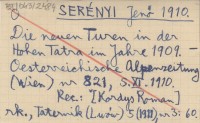 SERÉNYI Jenő 1910.
Die neuen Turen in der
Hohen Tatra im Jahre 1909. –
Oesterreichische Alpenzeitung
(Wien) nr 821, 5.VI.1910.
Rec.: [Kordys Roman]
rk., Taternik (Lwów) 5 (1911), nr 3: 60.